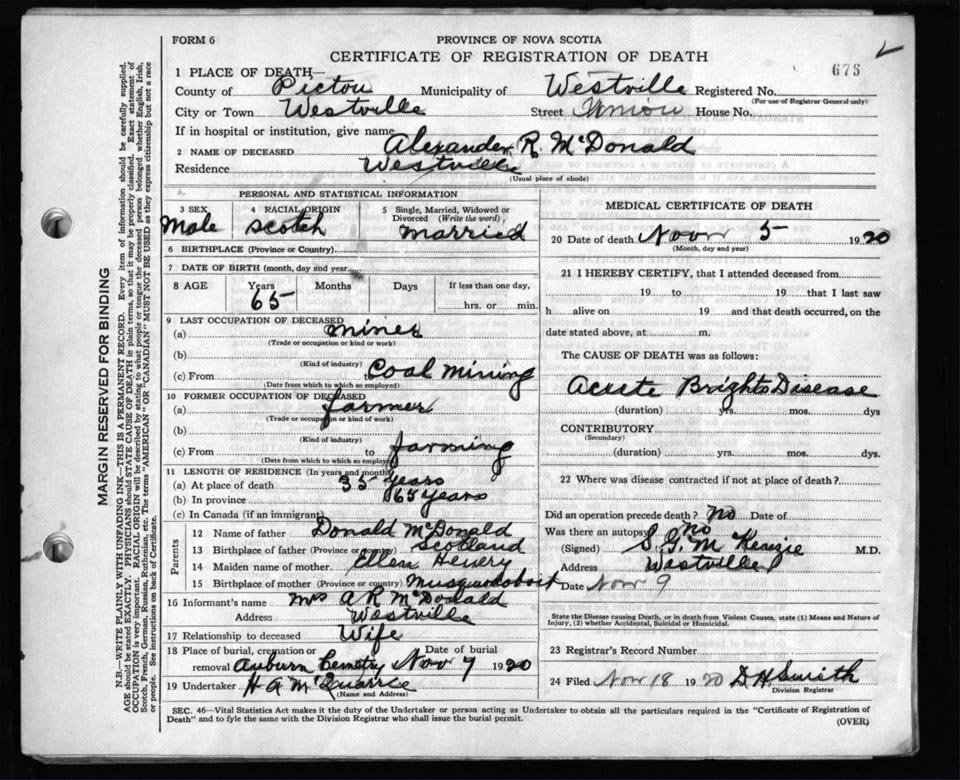 FORM 6
PROVINCE OF NOVA SCOTIA
CERTIFICATE OF REGISTRATION OF DEATH
675
1 PLACE OF DEATH—
County of Pictou Municipality of Westville Registered No.
(For use of Registrar General only)
City or Town Westville Street Union House No.
If in hospital or institution, give name
2 NAME OF DECEASED Alexander R. McDonald
Residence Westville
(Usual place of abode)
PERSONAL AND STATISTICAL INFORMATION
3 SEX Male
4 RACIAL ORIGIN Scotch
5 Single, Married, Widowed or Divorced (Write the word), married
6 BIRTHPLACE (Province or Country)
7 DATE OF BIRTH (month, day and year)
8 AGE Years 65 Months Days If less than one day, hrs. or min.
9 LAST OCCUPATION OF DECEASED
(a) miner
(Trade or occupation or kind or work)
(b)
(Kind of industry)
(c) From to Coal mining
(Date from which to which so employed)
10 FORMER OCCUPATION OF DECEASED
(a) farmer
(Trade or occupation or kind of work)
(b)
(Kind of industry)
(c) From to farming
(Date from which to which so employed)
11 LENGTH OF RESIDENCE (In years and months)
(a) At place of death 35 years
(b) In province 65 years
(c) In Canada (if an immigrant)
Parents
12 Name of father Donald McDonald
13 Birthplace of father (Province or country) Scotland
14 Maiden name of mother Ellen Henery
15 Birthplace of mother (Province or country) Musquodoboit
16 Informant's name Mrs A R McDonald
Address Westville
17 Relationship to deceased Wife
18 Place of burial, cremation or removal Auburn Cemetry Date of burial Nov 7 1920
19 Undertaker H A McQuarrie
(Name and Address)
MEDICAL CERTIFICATE OF DEATH
20 Date of death Nov 5 1920
(Month, day and year)
21 I HEREBY CERTIFY, that I attended deceased from
19 to 19 that I last saw
h alive on 19 and that death occurred, on the
date stated above, at m.
The CAUSE OF DEATH was as follows:
Acute Brights Disease
(duration) yrs. mos. dys
CONTRIBUTORY
(Secondary)
(duration) yrs. mos. dys.
22 Where was disease contracted if not at place of death?
Did an operation precede death? No Date of
Was there an autopsy No
(Signed) S. G. McKenzie M.D.
Address Westville
Date Nov 9
State the Disease causing Death, or in death from Violent Causes, state (1) Means and Nature of
Injury, (2) whether Accidental, Suicidal or Homicidal.
23 Registrar's Record Number
24 Filed Nov 18 1920 D H Smith
Division Registrar
SEC. 46—Vital Statistics Act makes it the duty of the Undertaker or person acting as Undertaker to obtain all the particulars required in the "Certificate of Registration of
Death" and to fyle the same with the Division Registrar who shall issue the burial permit.
(OVER)
MARGIN RESERVED FOR BINDING
N.B.—WRITE PLAINLY WITH UNFADING INK—THIS IS A PERMANENT RECORD. Every item of information should be carefully supplied.
AGE should be stated EXACTLY. PHYSICIANS should STATE CAUSE OF DEATH in plain terms, so that it may be properly classified. Exact statement of
OCCUPATION is very important. RACIAL ORIGIN will be described by stating to what people or tongue the deceased person belonged whether English, Irish,
Scotch, French, German, Russian, Ruthenian, etc. The terms "AMERICAN" OR "CANADIAN" MUST NOT BE USED as they express citizenship but not a race
or people. See instructions on back of Certificate.